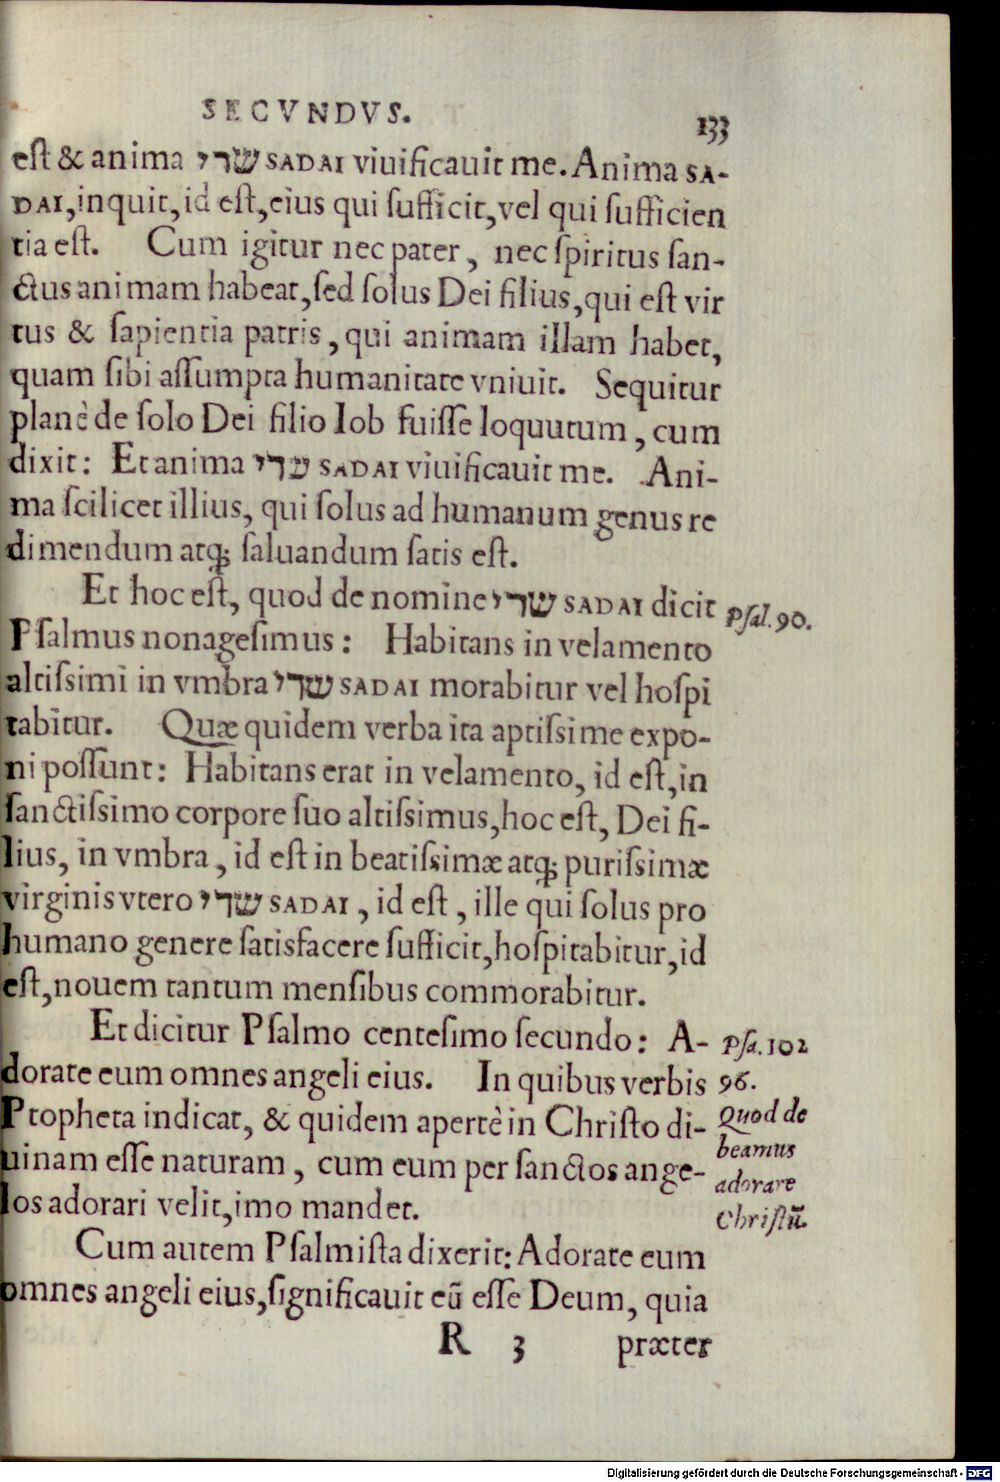 SECVNDVS. 133
est & anima שדי SADAI viuificauit me. Anima SA-
DAI, inquit, id est, eius qui sufficit, vel qui sufficien
tia est. Cum igitur nec pater, nec spiritus san-
ctus animam habeat, sed solus Dei filius, qui est vir
tus & sapientia patris, qui animam illam habet,
quam sibi assumpta humanitate vniuit. Sequitur
planè de solo Dei filio Iob fuisse loquutum, cum
dixit: Et anima שדי SADAI viuificauit me. Ani-
ma scilicet illius, qui solus ad humanum genus re
dimendum atq; saluandum satis est.
Et hoc est, quod de nomine שדי SADAI dicit
Psal. 90.
Psalmus nonagesimus: Habitans in velamento
altissimi in vmbra שדי SADAI morabitur vel hospi
tabitur. Quæ quidem verba ita aptissime expo-
ni possunt: Habitans erat in velamento, id est, in
sanctissimo corpore suo altissimus, hoc est, Dei fi-
lius, in vmbra, id est in beatissimæ atq; purissimæ
virginis vtero שדי SADAI, id est, ille qui solus pro
humano genere satisfacere sufficit, hospitabitur, id
est, nouem tantum mensibus commorabitur.
Et dicitur Psalmo centesimo secundo: A-
Psa. 102
dorate eum omnes angeli eius. In quibus verbis
96.
Propheta indicat, & quidem apertè in Christo di-
Quod de
uinam esse naturam, cum eum per sanctos ange-
beamus
adorare
los adorari velit, imo mandet.
Christū.
Cum autem Psalmista dixerit: Adorate eum
omnes angeli eius, significauit eū esse Deum, quia
R 3 præter
Digitalisierung gefördert durch die Deutsche Forschungsgemeinschaft - DFG